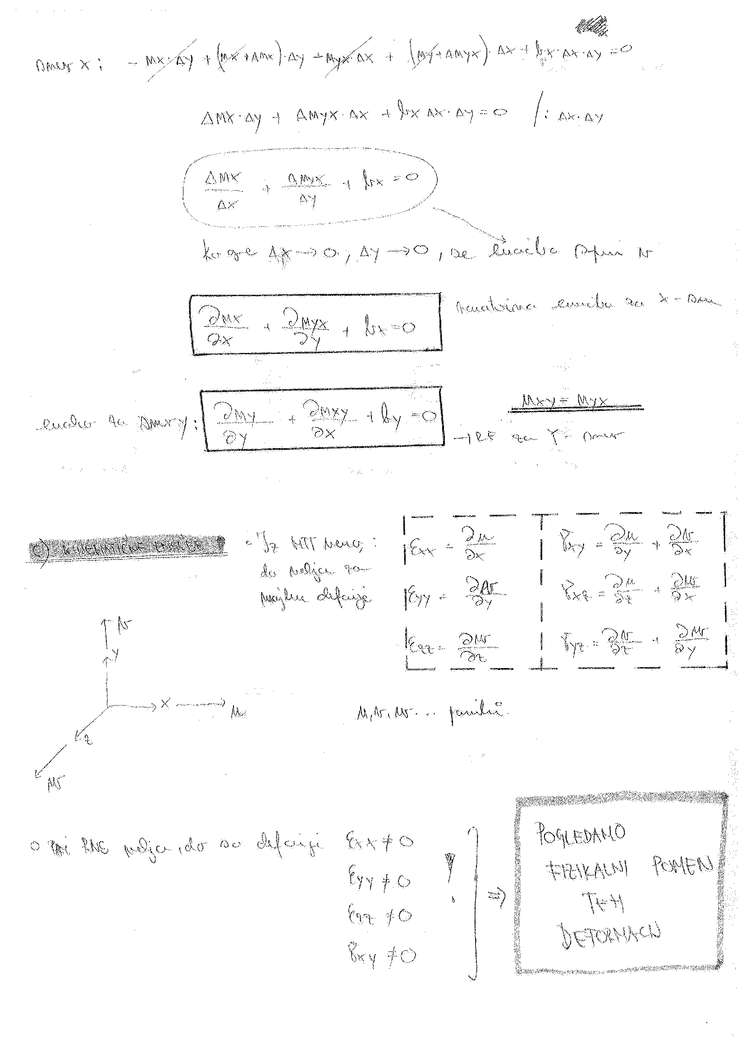 smer x: - mx·Δy + (mx + Δmx)·Δy - myx·Δx + (my + Δmyx)·Δx + bx·Δx·Δy = 0
Δmx·Δy + Δmyx·Δx + bx Δx·Δy = 0 /: Δx·Δy
Δmx/Δx + Δmyx/Δy + bx = 0
ko gre Δx → 0, Δy → 0, se enačba v
∂mx/∂x + ∂myx/∂y + bx = 0 enačba za x - smer
enačba za smer y: ∂my/∂y + ∂mxy/∂x + by = 0
mxy = myx
→ RE za Y - smer
c) KINEMATIČNE ENAČBE
- Iz MTT vemo,:
da velja za
majhne deformacije
εxx = ∂u/∂x γxy = ∂u/∂y + ∂v/∂x
εyy = ∂v/∂y γxz = ∂u/∂z + ∂w/∂x
εzz = ∂w/∂z γyz = ∂v/∂z + ∂w/∂y
v
y
x
u
z
w
u, v, w ... pomiki
o Pri RNS velja, da so deformacije εxx ≠ 0
εyy ≠ 0
εzz ≠ 0
γxy ≠ 0
! ⇒
POGLEDAMO
FIZIKALNI POMEN
TEH
DEFORMACIJ